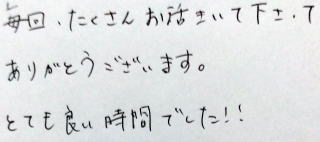 毎回、たくさんお話きいて下さって
ありがとうございます。
とても良い時間でした!!